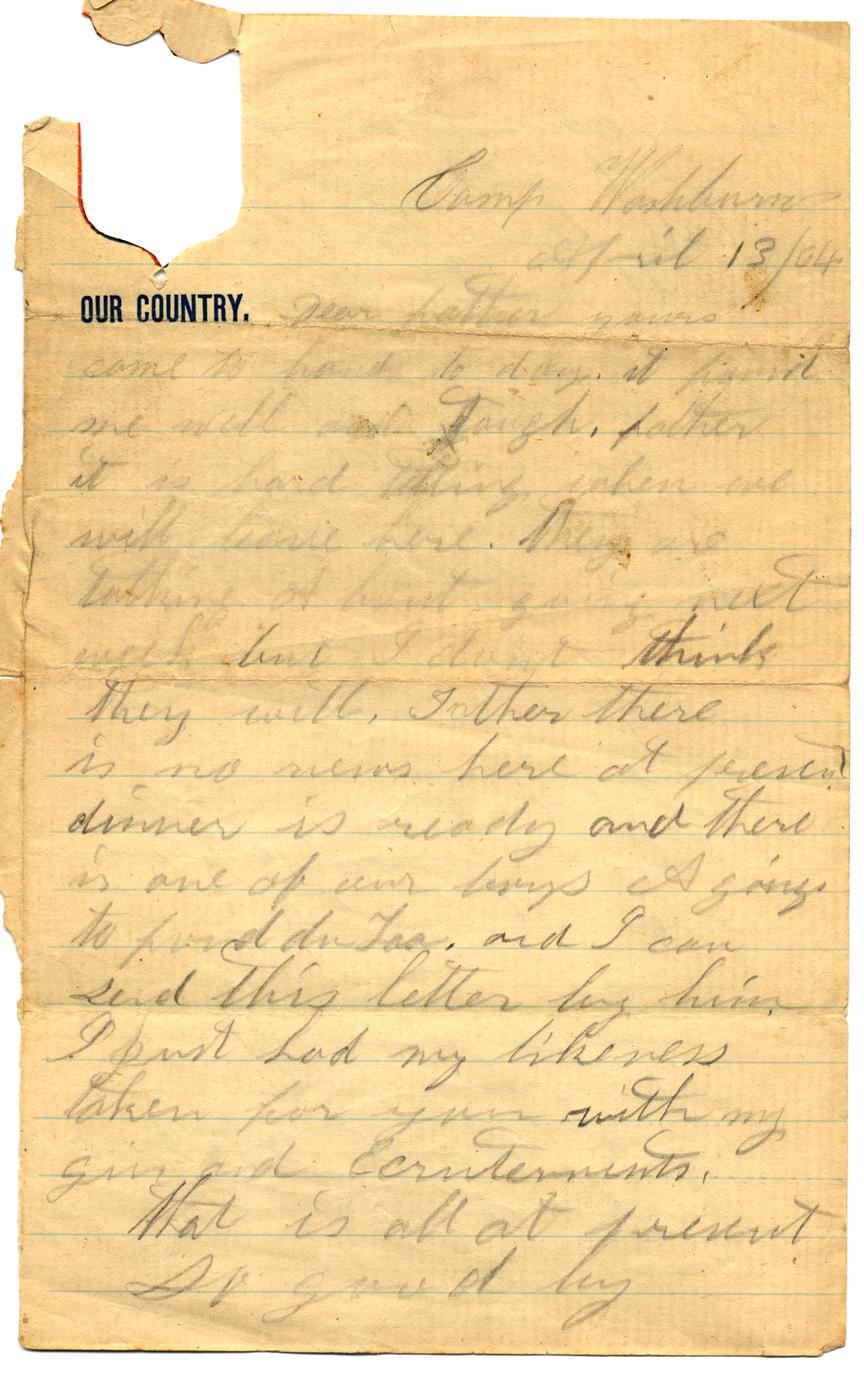 Camp Washburn
April 13/64
OUR COUNTRY. Dear father yours
come to hand to day. it found
me well and tough. father
it is hard telling when we
will leave here. they are
talking A bout going next
week but I dont think
they will. Father there
is no news here at present
dinner is ready and there
is one of our boys A going
to fond du Lac. and I can
send this letter by him.
I just had my likeness
taken for you with my
gun and Ecruterments.
that is all at present
So good by